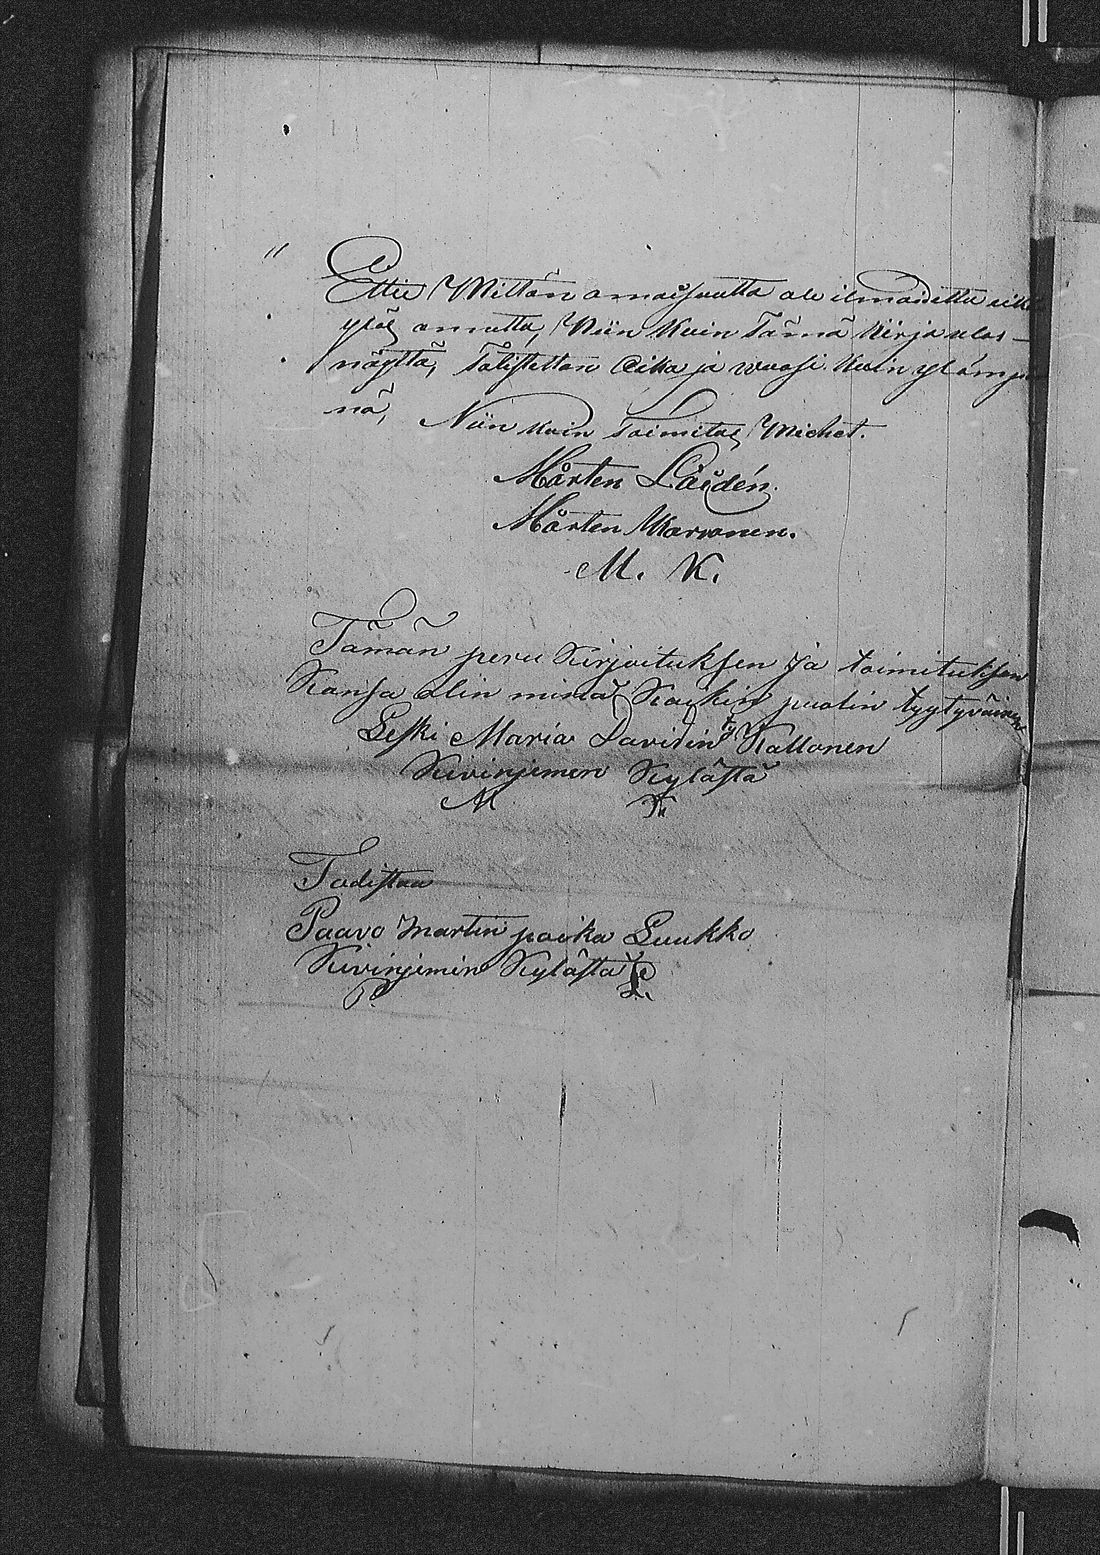 "
Ettei Mittän omaisuutta ole ilmoidettu eikä
ylös annettu, Niin kuin Tämä kirja ulos-
näyttä, Totistettan Aika ja wuosi kuin ylämpä
nä, Niin kuin Toimitus Miehet.
Mårten
Mårten Karvonen.
M. K.
Tämän peru Kirjoituksen ja toimituksen
Kansa olin minä Kaikin puolin tyytyväinen
Leski Maria Davidin ty Kallonen
Kivinjemen Kylästä
M K
Todistaa
Paavo Martin poika Luukko
Kivinjemin Kylästä
P. L.